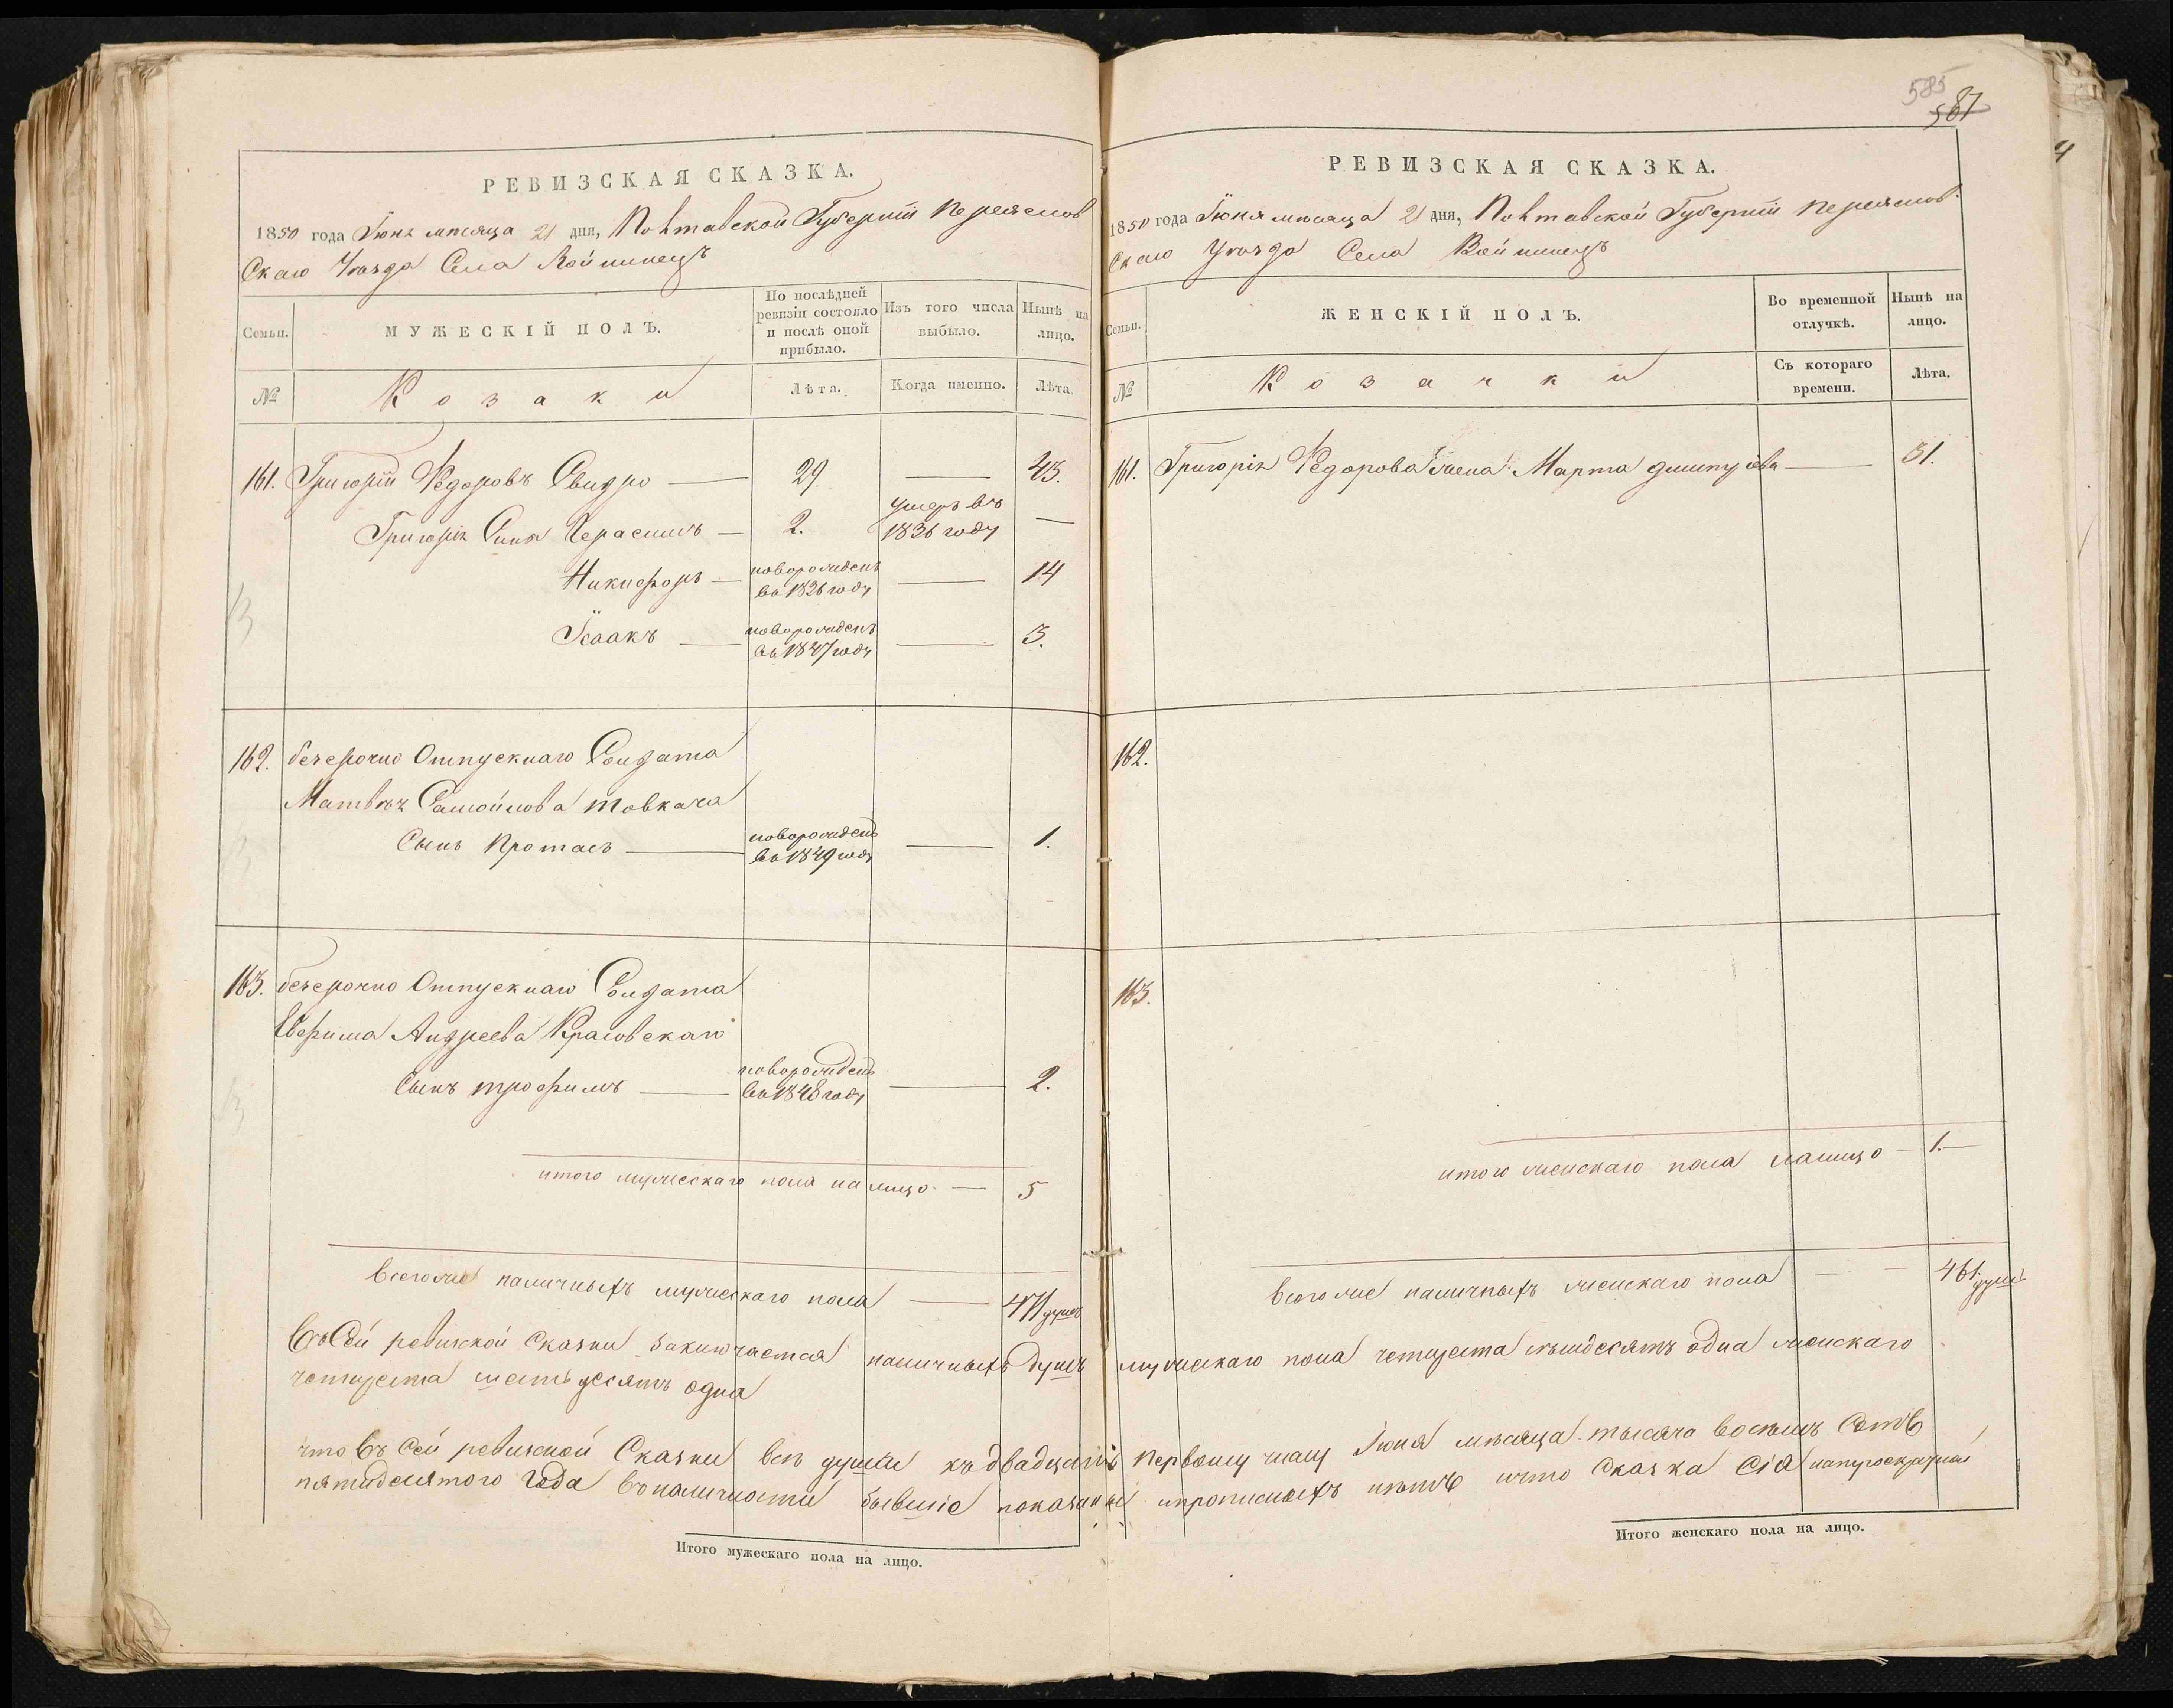 РЕВИЗСКАЯ СКАЗКА.
1850 года Іюня мѣсяца 21 дня, Полтавской Губерніи Переяслов
Скаго Уѣзда Села Войтинецъ
Семьи.
МУЖЕСКІЙ ПОЛЪ.
По послѣдней ревизіи состояло и послѣ оной прибыло.
Изъ того числа выбыло.
Нынѣ на лицо.
№
Козаки
Лѣта.
Когда именно.
Лѣта.
161. Григорій Федоровъ Свидро — 29 — 43.
Григорія Сынъ Герасимъ — 2. умеръ въ 1836 году —
Никифоръ — новорожденъ въ 1836 году — 14
Ісаакъ — новорожденъ въ 1847 году — 3.
162. безсрочно Отпускнаго Солдата
Матвѣя Самойлова Товкача
Сынъ Протасъ — новорожденъ въ 1849 году — 1.
163. безсрочно Отпускнаго Солдата
Ефима Андреева Красовскаго
Сынъ Трофимъ — новорожденъ въ 1848 году — 2.
итого мужескаго пола на лицо — 5
Всегоже наличныхъ мужескаго пола — 471 душъ
585
587
РЕВИЗСКАЯ СКАЗКА.
1850 года Іюня мѣсяца 21 дня, Полтавской Губерніи Переяслов
Скаго Уѣзда Села Войтинецъ
Семьи.
ЖЕНСКІЙ ПОЛЪ.
Во временной отлучкѣ.
Нынѣ на лицо.
№
Козачки
Съ котораго времени.
Лѣта.
161. Григорія Федорова Жена Марта — 31.
162.
163.
итого женскаго пола налицо — 1. —
Всегоже наличныхъ женскаго пола — — 461 душъ
Въ Сей ревизской Сказки заключается наличныхъ душъ мужескаго пола четыреста семьдесятъ одна женскаго
четыреста шестьдесятъ одна
что въ Сей ревизской Сказки всѣ души къ двадцать первому числу Іюня мѣсяца тысяча восемь сотъ
пятидесятого года въ наличности бывшіе показаны и прописныхъ нѣтъ и что Сказка Сія
Итого мужескаго пола на лицо.
Итого женскаго пола на лицо.